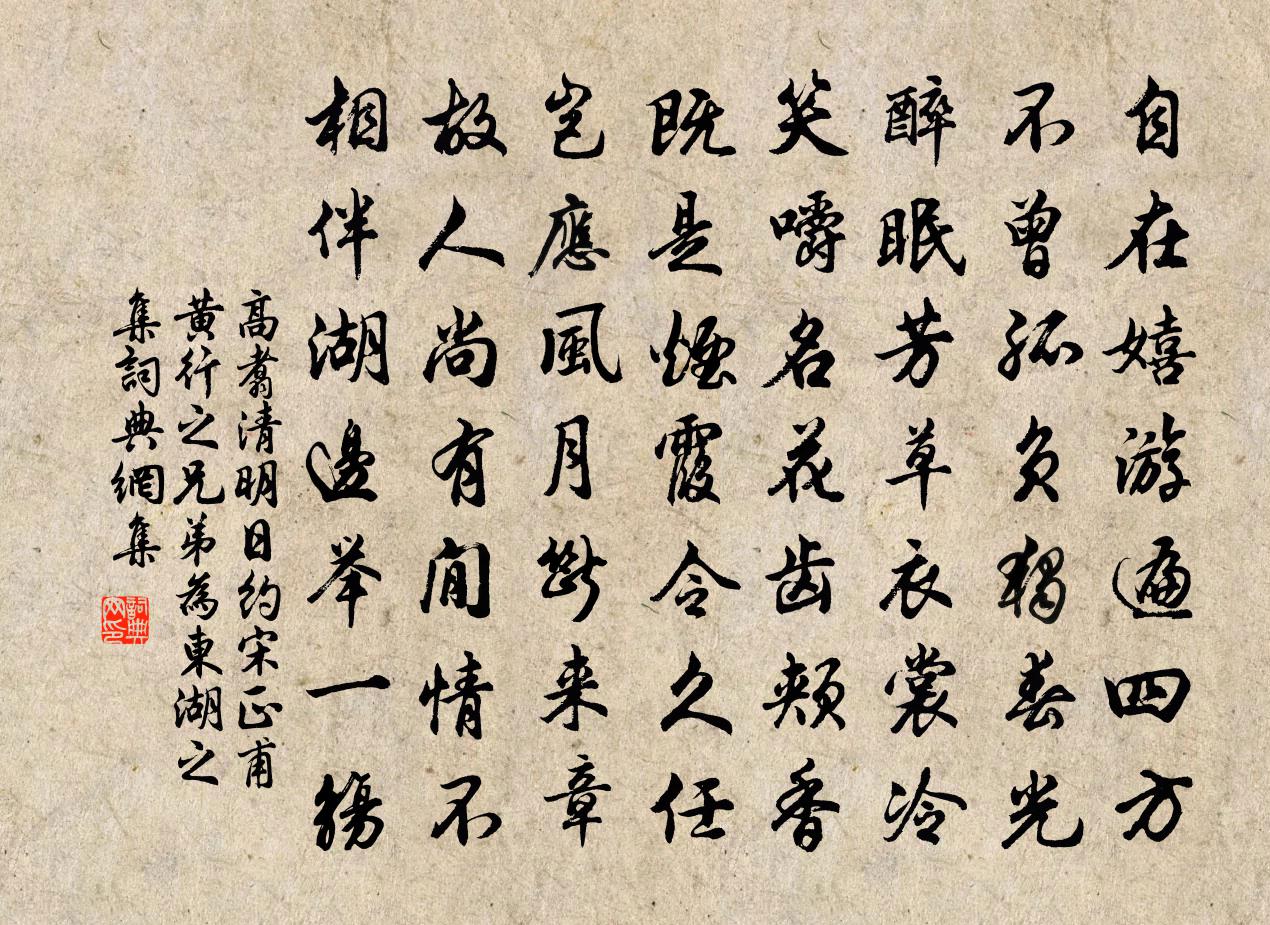 自在嬉游遍四方
不曾孤负独春光
醉眠芳草衣裳冷
笑嚼名花齿颊香
既是烟霞令久任
岂應風月斷来章
故人尚有閒情不
相伴湖邊举一觴
高翥清明日约宋正甫
黄行之兄弟為東湖之
集詞典網集
詞典网印